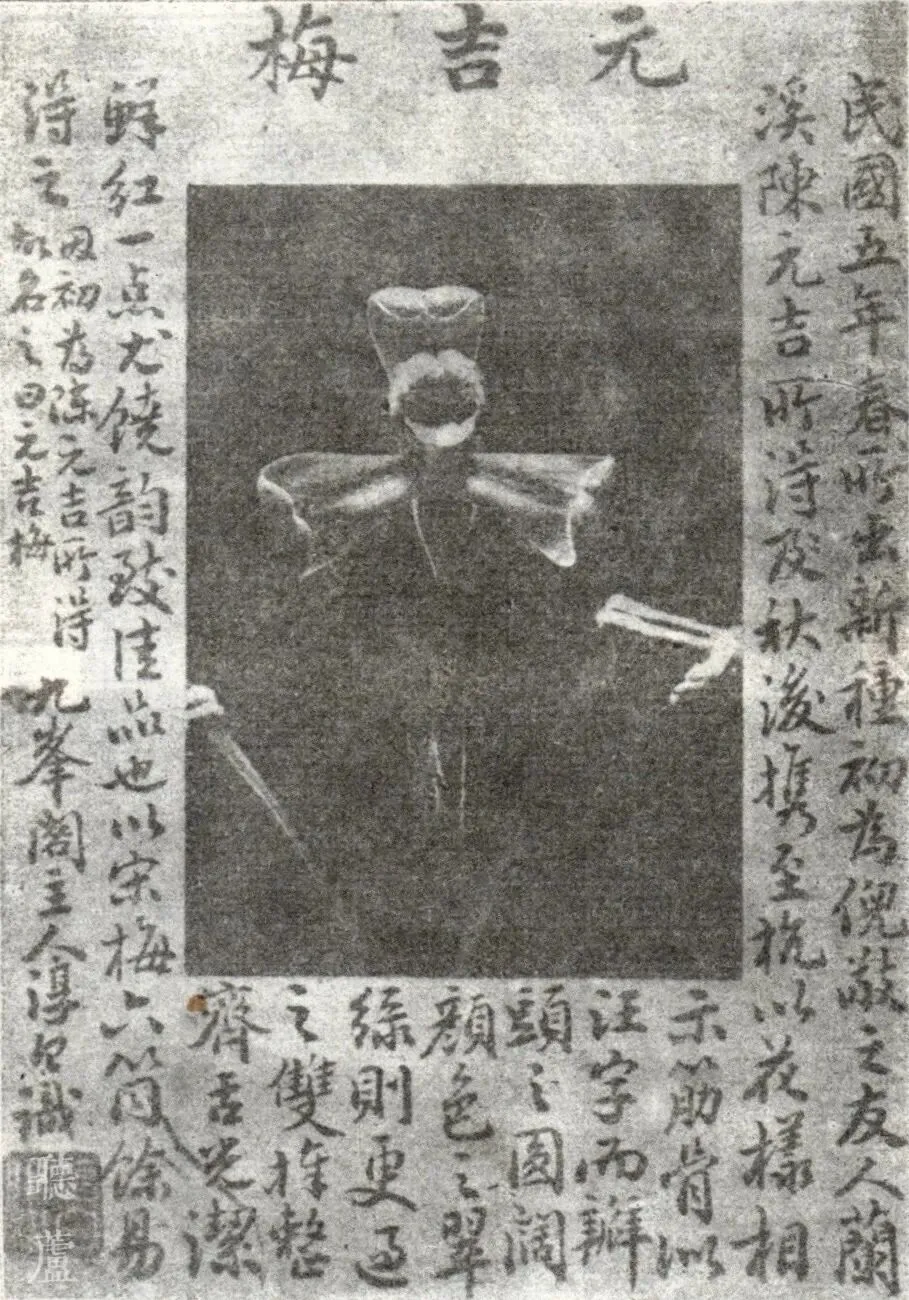 元吉梅
民國五年春所出新種初為倪敬之友人蘭
溪陳元吉所得及秋後携至杭以花樣相
示筋骨似
汪字而瓣
頭之圓闊
顏色之翠
綠則更過
之雙捧整
齊舌光潔
鮮紅一点尤饒韵致佳品也以宋梅六筒餘易
得之
因初為陈元吉所得
故名之曰元吉梅
九峯閣主人淳白識
聽蘆